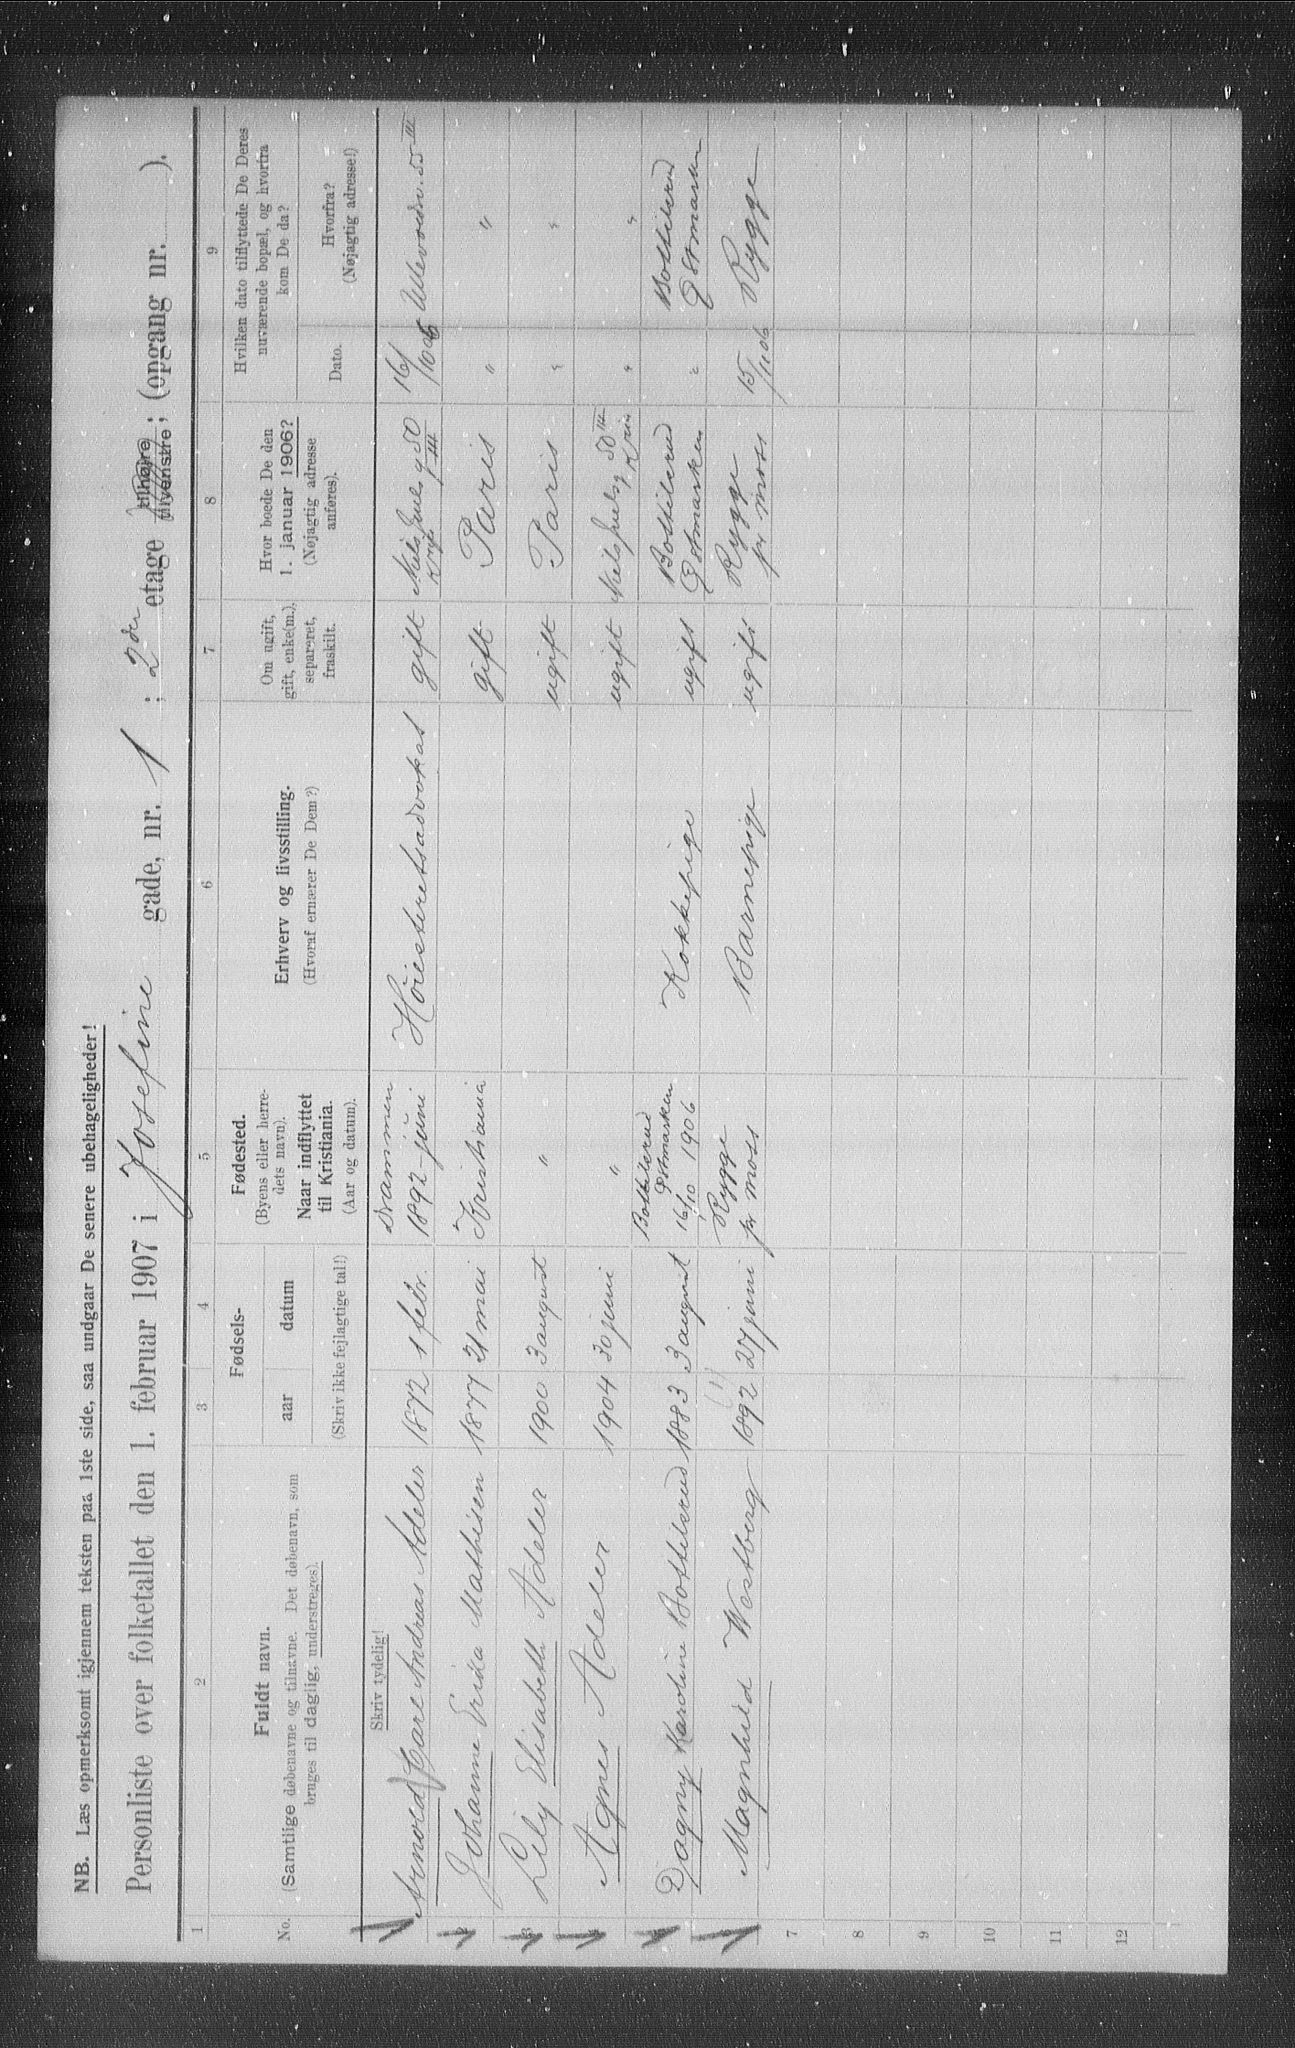 NB. Læs opmerksomt igjennem teksten paa 1ste side, saa undgaar De senere ubehageligheder!
Personliste over folketallet den 1. februar 1907 i Josefine gade, nr. 1 ; 2den etage tilhøjre tilvenstre ; (opgang nr. ).
1 2 3 4 5 6 7 8 9
No.
Fuldt navn.
(Samtlige døbenavne og tilnavne. Det døbenavn, som
bruges til daglig, understreges).
Fødsels-
aar datum
(Skriv ikke fejlagtige tal!)
Fødested.
(Byens eller herre-
dets navn).
Naar indflyttet
til Kristiania.
(Aar og datum).
Erhverv og livsstilling.
(Hvoraf ernærer De Dem?)
Om ugift,
gift, enke(m.),
separeret,
fraskilt.
Hvor boede De den
1. januar 1906?
(Nøjagtig adresse
anføres).
Hvilken dato tilflyttede De Deres
nuværende bopæl, og hvorfra
kom De da?
Dato.
Hvorfra?
(Nøjagtig adresse!)
Skriv tydelig!
Arnold Andreas Adeler 1872 1 febr. Drammen 1892 - juni Høiesteretsadvokat gift Niels Juels g 50 III 16/10 06 Ullevoldsv. 55 III
2 Johanne Frida Mathisen 1877 21 mai Kristiania gift Paris " "
3 Lily Elisabeth Adeler 1900 3 august " ugift Paris " "
4 Agnes Adeler 1904 30 juni " ugift Niels Juelsg 50 III " "
Dagny Karoline Bottilsrud 1883 3 august Bottilsrud Østmarken 16/10 1906 Kokkepige ugift Bottilsrud Østmarken " Bottilsrud Østmarken
Magnhild Westberg 1892 (1) 27 juni Rygge pr moss Barnepige ugift Rygge pr moss 15/11 06 Rygge
7
8
9
10
11
12